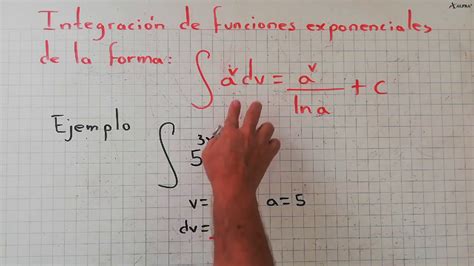 Integración de funciones exponenciales
de la forma: ∫ a^v dv = a^v / ln a + C
Ejemplo ∫ 5^3
v= a=5
dv=